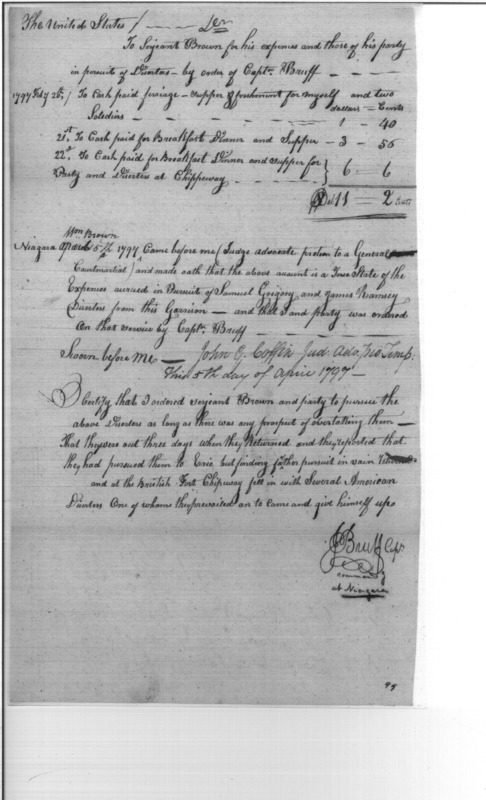 The United States / — — — Dr
To Serjeant Brown for his expences and those of his party
in pursuit of Diserters — by order of Captn. Bruff —
1797 Feby 20th / To Cash paid feriage — Supper & freshment for myself and two
dollars — Cents
Soldiers — 1 — 40
21st. To Cash paid for Breakfast Dinner and Supper — 3 — 56
22d. To Cash paid for Breakfast Dinner and supper for
Party and Diserters at Chippeway — 6 — 6
Dol 11 — 2 Cents
Wm Brown
Niagara April 5th 1797 Came before me (Judge advocate protem to a General
Courtmartial) and made oath that the above account is a True State of the
Expences accrued in Persuite of Samuel Gregory and James Ramsey
Diserters from this Garrison — and that I and party was ordered
on that service by Captn. Bruff —
Sworn before me — John G. Coffin Jud. Ado. Pro Temp.
this 5th day of April 1797 —
I Certify that I ordered Serjeant Brown and party to pursue the
above Diserters as long as there was any prospect of overtaking them —
That they were out three days when they returned and they reported that
they had pursued them to Erie but finding farther pursuit in vain
and at the British Fort Chipeway fell in with Several American
Diserters One of whome they prevailed on to Come and give himself up
Bruff Capt
commandg
at Niagara